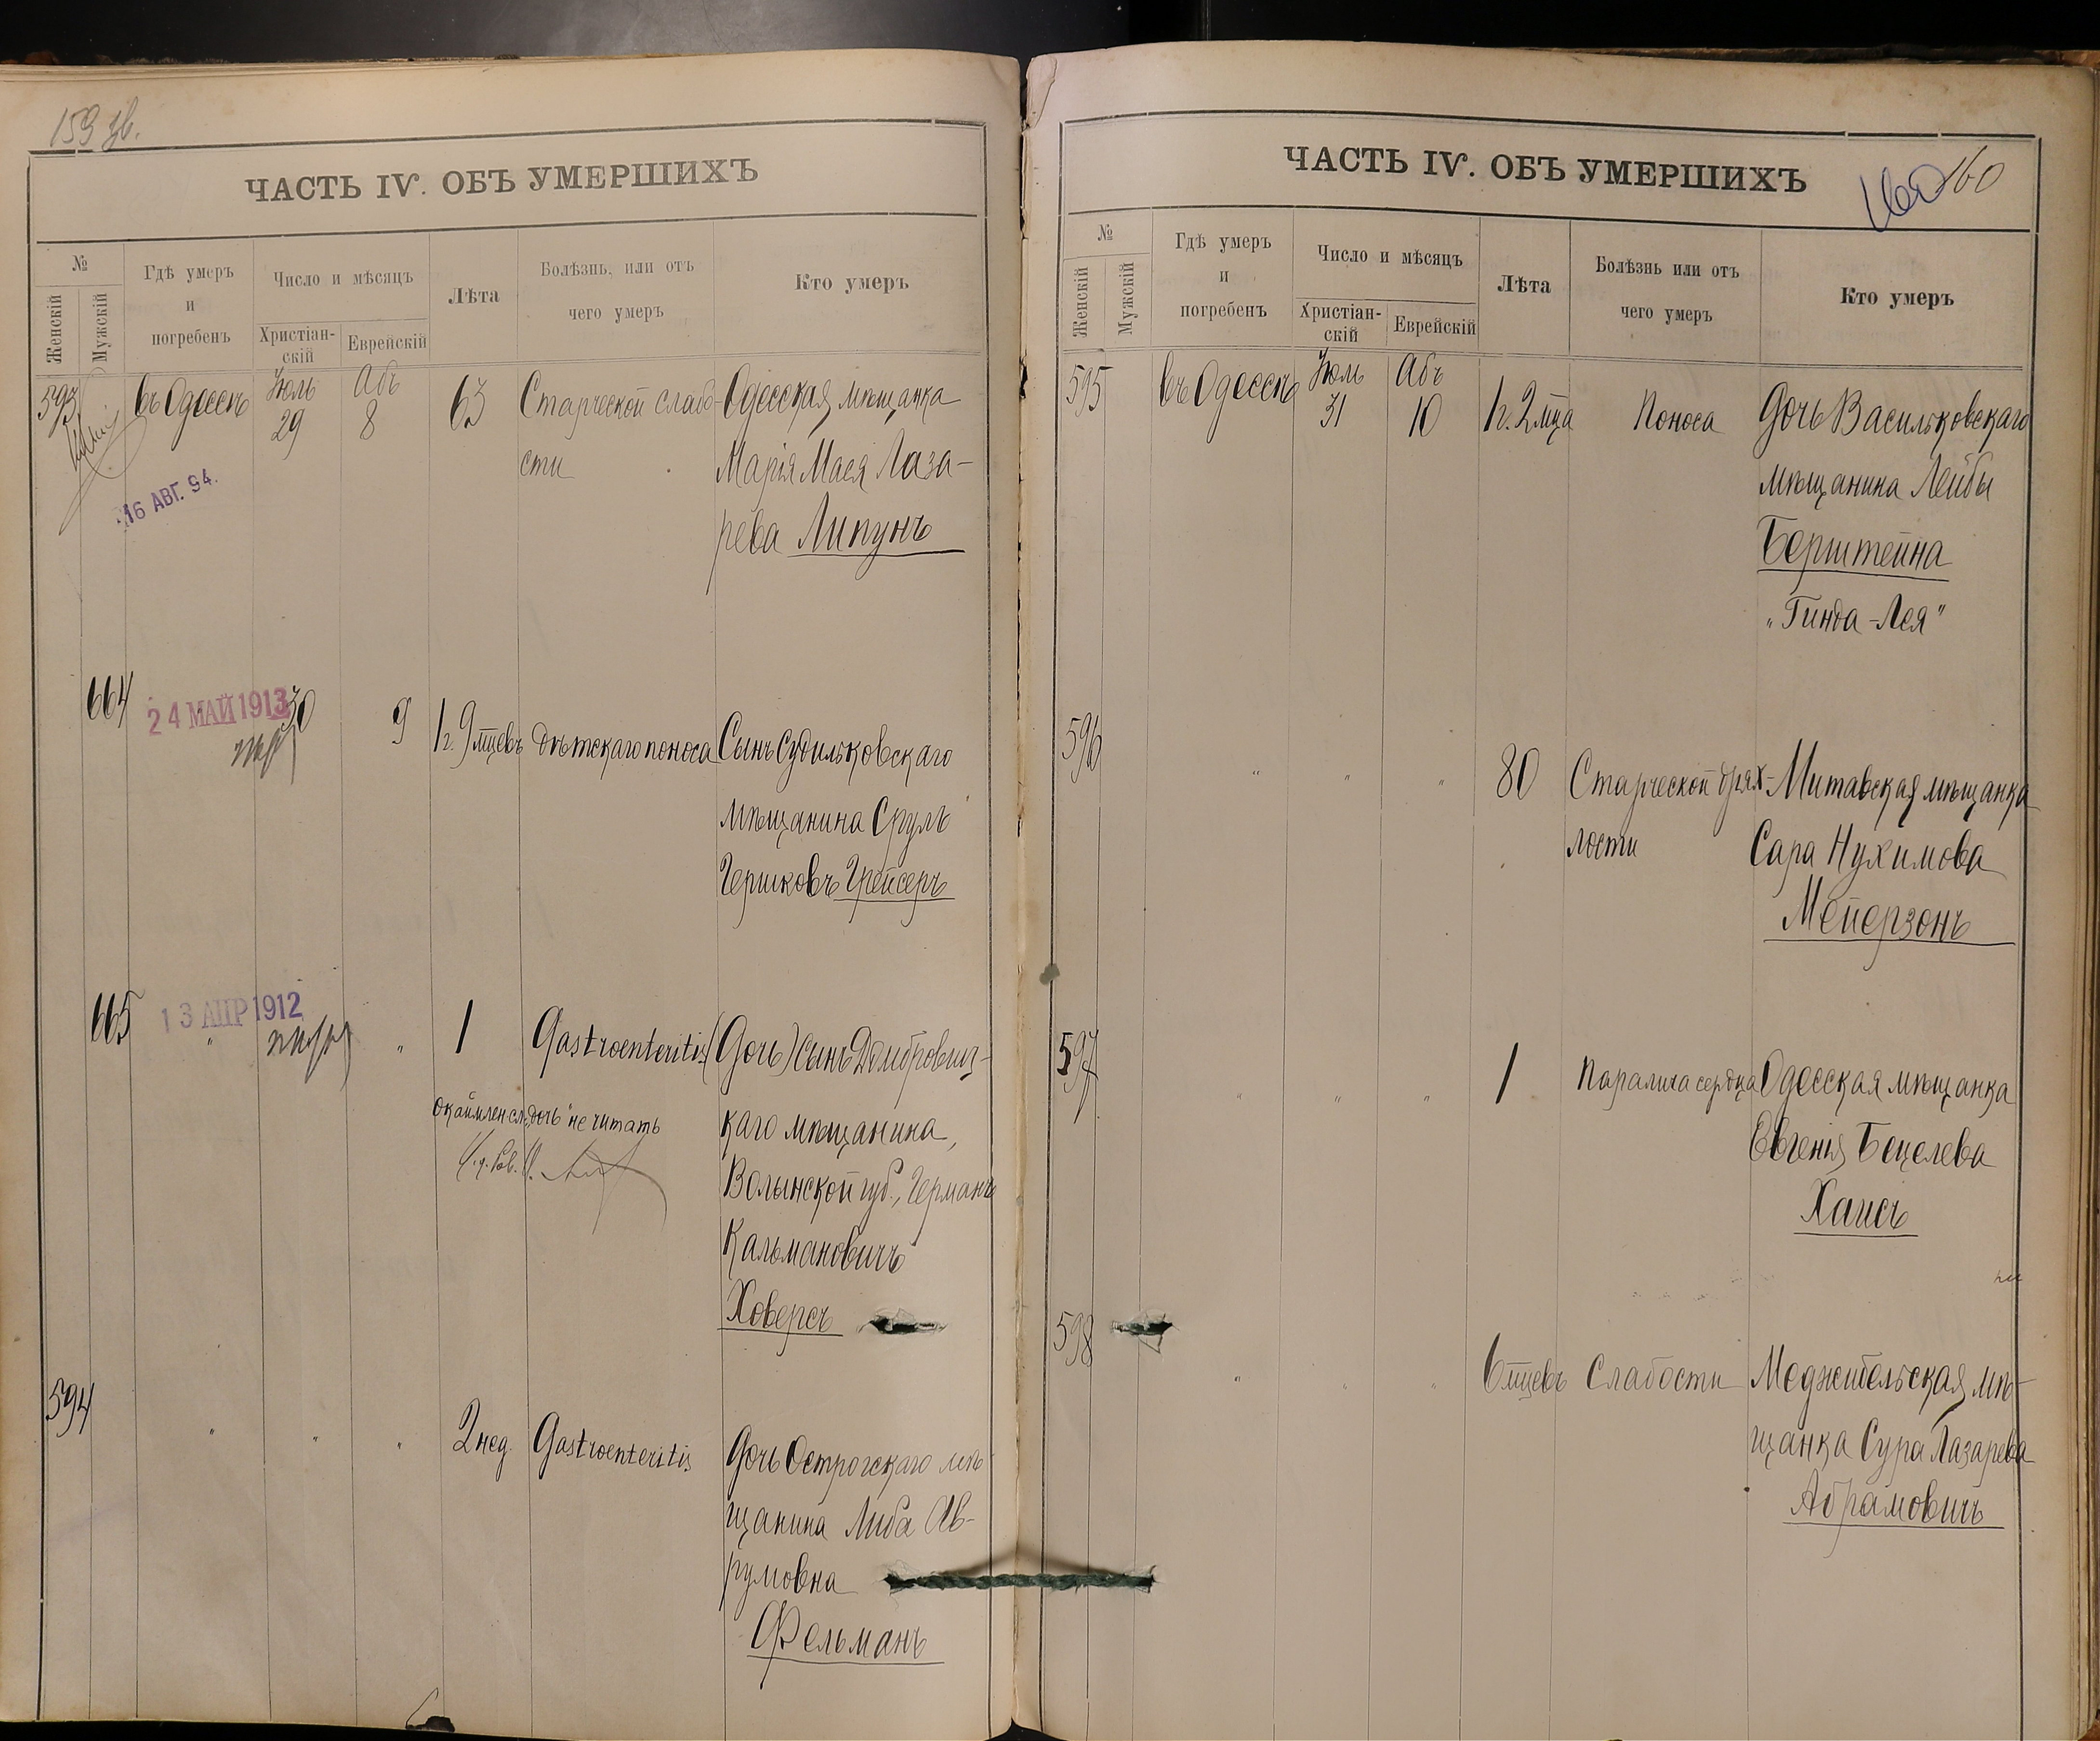 159 зв.
ЧАСТЬ IV. ОБЪ УМЕРШИХЪ
№
Женскій
Мужскій
Гдѣ умеръ
и
погребенъ
Число и мѣсяцъ
Христіан-
скій
Еврейскій
Лѣта
Болѣзнь, или отъ
чего умеръ
Кто умеръ
593 въ Одессѣ Іюль 29 Абъ 8 63 Старческой слабо- Одесская мѣщанка
сти Марія Масея Лаза-
рева Липунъ
16 АВГ. 94.
664 30 9 1 г. 9 мцевъ дѣтскаго поноса Сынъ Судилковскаго
24 МАЙ 1913
мѣщанина Сруль
Гершковъ Грейсеръ
665 " " 1 Gastroenteritis (Дочь) Сынъ Домбровиц-
13 АПР 1912
Окаймлен. сл. „дочь" не читать
каго мѣщанина,
Волынской губ., Германъ
Кальмановичъ
Ховерсъ
594 " " " 2 нед. Gastroenteritis Дочь Острогскаго мѣ-
щанина Либа Ав-
румовна
Фельманъ
ЧАСТЬ IV. ОБЪ УМЕРШИХЪ
160 160
№
Женскій
Мужскій
Гдѣ умеръ
и
погребенъ
Число и мѣсяцъ
Христіан-
скій
Еврейскій
Лѣта
Болѣзнь или отъ
чего умеръ
Кто умеръ
595 въ Одессѣ Іюль 31 Абъ 10 1 г. 2 мца Поноса Дочь Васильковскаго
мѣщанина Лейбы
Берштейна
„Гинда-Лея"
596 " " " 80 Старческой дрях- Митавская мѣщанка
лости Сара Нухимова
Мейерзонъ
597 " " " 1 Паралича сердца Одесская мѣщанка
Евгенія Бецелева
Хаисъ
598 " " " 6 мцевъ Слабости Меджибельская мѣ-
щанка Сура Лазарева
Абрамовичъ